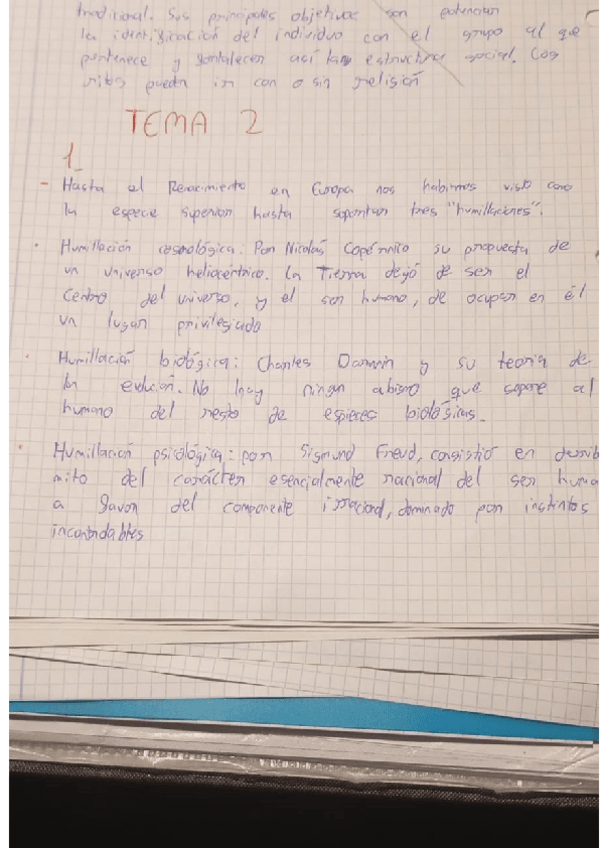 tradicional. Sus principales objetivos son potenciar
la identificación del individuo con el grupo al que
pertenece y fortalecer así la estructura social. Los
ritos pueden ir con o sin religión
TEMA 2
1_
- Hasta el Renacimiento en Europa nos habíamos visto como
la especie superior hasta soportar tres "humillaciones".
· Humillación cosmológica: Por Nicolás Copérnico su propuesta de
un universo heliocéntrico. La Tierra dejó de ser el
centro del universo, y el ser humano, de ocupar en él
un lugar privilegiado
· Humillación biológica: Charles Darwin y su teoría de
la evolución. No hay ningún abismo que separe al
humano del resto de especies biológicas.
· Humillación psicológica: por Sigmund Freud, consistió en derrib
mito del carácter esencialmente racional del ser huma
a favor del componente irracional, dominado por instintos
incontrolables